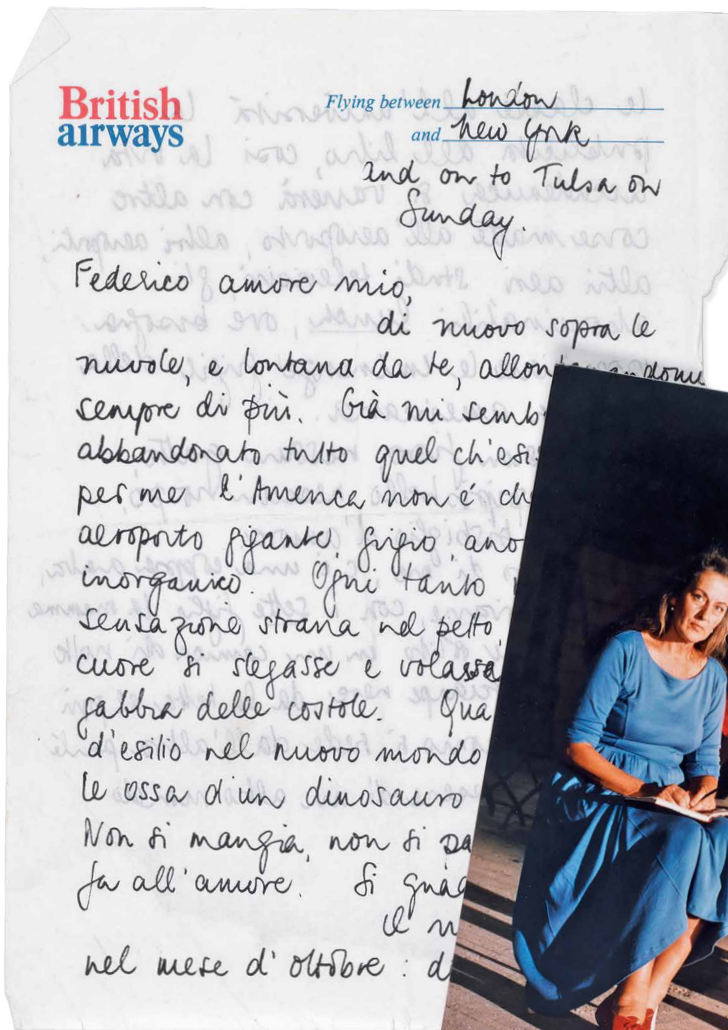 British
airways
Flying between London
and New York
and on to Tulsa on
Sunday.
Federico amore mio,
di nuovo sopra le
nuvole, e lontana da te,
sempre di più. Già mi semb
abbandonato tutto quel ch'esi
per me l'America non é ch
aeroporto gigante, grigio, ano
inorganico. Ogni tanto
sensazione strana nel petto
cuore si slegasse e volasse
gabbia delle costole. Qua
d'esilio nel nuovo mondo
le ossa di un dinosauro
Non si mangia, non si pa
fa all'amore. Si guad
nel mese d'ottobre: d